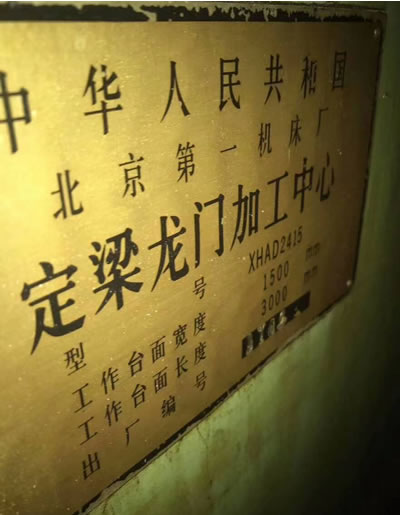 中华人民共和国
北京第一机床厂
定梁龙门加工中心
型号 XHAD2415
工作台面宽度 1500 mm
工作台面长度 3000 mm
出厂编号